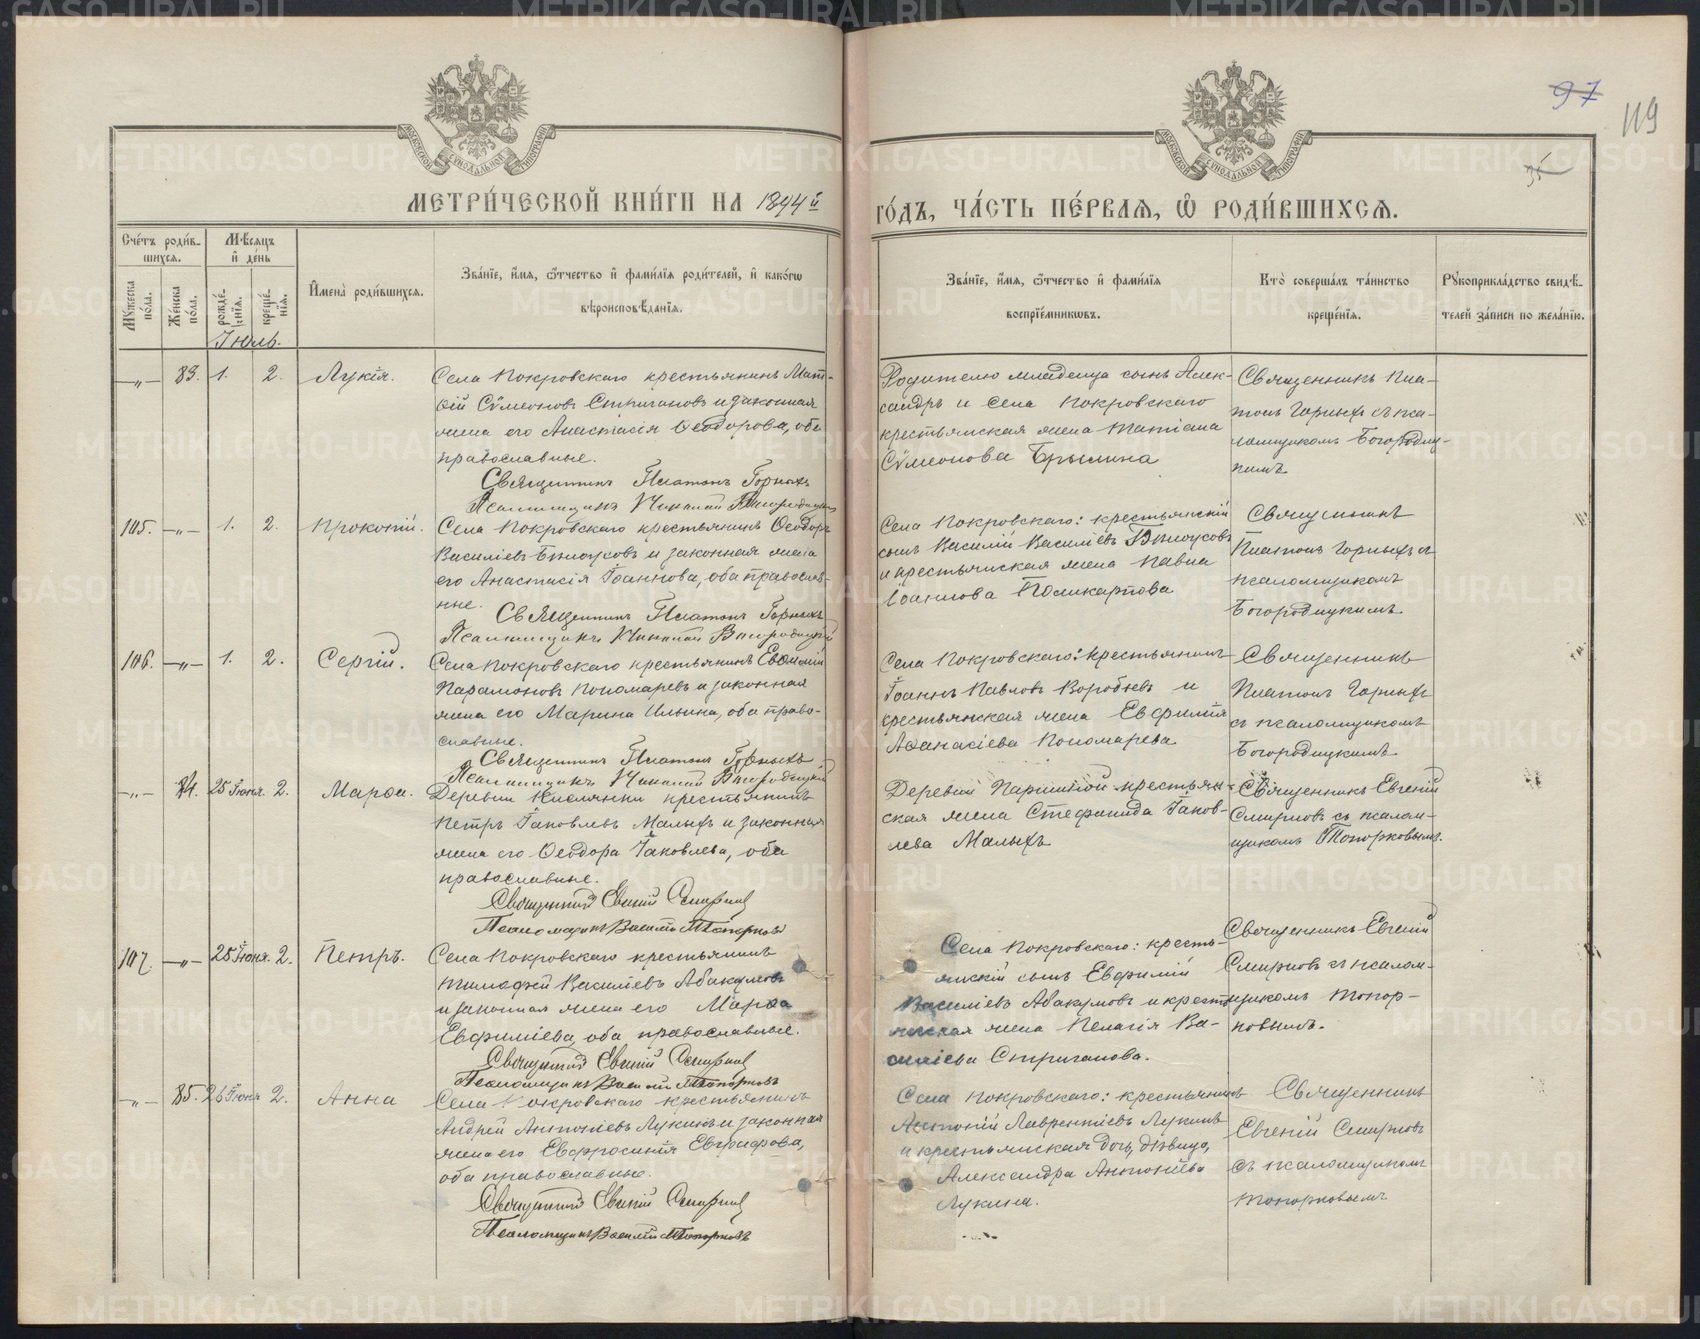 97
119
35
МОСКОВСКОЙ СѴНОДАЛЬНОЙ ТИПОГРАФІИ
МОСКОВСКОЙ СѴНОДАЛЬНОЙ ТИПОГРАФІИ
МЕТРИ́ЧЕСКОЙ КНИ́ГИ НА 1894й
ГО́ДЪ, ЧА́СТЬ ПЕ́РВАЯ, Ѡ РОДИ́ВШИХСЯ.
Сче́тъ роди́в-
шихся.
Мѣсяцъ
и҆ де́нь
Мꙋ́жеска по́ла.
Же́нска по́ла.
рожде́-нїя.
креще́-нїя.
И҆мена̀ роди́вшихся.
Зва́нїе, и҆́мя, ѻ҆́тчество и҆ фами́лїя роди́телей, и҆ како́гѡ
вѣроисповѣ́данїя.
Зва́нїе, и҆́мя, ѻ҆́тчество и҆ фами́лїя
воспрїе́мникѡвъ.
Кто̀ соверша́лъ та́инство
креще́нїя.
Рꙋкоприкла́дство свидѣ́-
телей за́писи по жела́нїю.
Іюль.
—„— 83. 1. 2. Лукія.
Села Покровскаго крестьянинъ Мат-
ѳій Сѵмеоновъ Стригановъ и законная
жена его Анастасія Ѳеодорова, оба
православные.
Священникъ Платонъ Горныхъ
Псаломщикъ Николай Богородицкій
Родителю младенца сынъ Алек-
сандръ и села Покровскаго
крестьянская жена Татіана
Сѵмеонова Брылина
Священникъ Пла-
тонъ Горныхъ съ пса-
ломщикомъ Богородиц-
кимъ
105. —„— 1. 2. Прокопій.
Села Покровскаго крестьянинъ Ѳеодоръ
Василіевъ Бѣлоусовъ и законная жена
его Анастасія Іоаннова, оба православ-
ные.
Священникъ Платонъ Горныхъ
Псаломщикъ Николай Богородицкій
Села Покровскаго: крестьянскій
сынъ Василій Василіевъ Бѣлоусовъ
и крестьянская жена Павла
Іоаннова Поликарпова
Священникъ
Платонъ Горныхъ съ
псаломщикомъ
Богородицкимъ
106. —„— 1. 2. Сергій.
Села Покровскаго крестьянинъ Евѳимій
Парамоновъ Пономаревъ и законная
жена его Марина Ильина, оба право-
славные.
Священникъ Платонъ Горныхъ
Псаломщикъ Николай Богородицкій
Села Покровскаго: крестьянинъ
Іоаннъ Павловъ Воробьевъ и
крестьянская жена Евфимія
Аѳанасіева Пономарева
Священникъ
Платонъ Горныхъ
съ псаломщикомъ
Богородицкимъ
—„— 84. 25 Іюня. 2. Марѳа.
Деревни Кислянки крестьянинъ
Петръ Іаковлевъ Малыхъ и законная
жена его Ѳеодора Іаковлева, оба
православные.
Священникъ Евгеній Смирновъ
Псаломщикъ Василій Топорковъ
Деревни Паршиной крестьян-
ская жена Стефанида Іаков-
лева Малыхъ
Священникъ Евгеній
Смирновъ съ псалом-
щикомъ Топорковымъ.
107. —„— 25 Іюня. 2. Петръ.
Села Покровскаго крестьянинъ
Тимоѳей Василіевъ Абакумовъ
и законная жена его Марѳа
Евфиміева, оба православные.
Священникъ Евгеній Смирновъ
Псаломщикъ Василій Топорковъ
Села Покровскаго: кресть-
янскій сынъ Евфимій
Василіевъ Абакумовъ и кресть-
янская жена Пелагія Ва-
силіева Стриганова.
Священникъ Евгеній
Смирновъ съ псалом-
щикомъ Топор-
ковымъ.
—„— 85. 26 Іюня 2. Анна
Села Покровскаго крестьянинъ
Андрей Антоніевъ Лукинъ и законная
жена его Евфросинія Евграфова,
оба православные.
Священникъ Евгеній Смирновъ
Псаломщикъ Василій Топорковъ
Села Покровскаго: крестьянинъ
Антоній Лаврентіевъ Лукинъ
и крестьянская дочь, дѣвица,
Александра Антоніева
Лукина.
Священникъ
Евгеній Смирновъ
съ псаломщикомъ
Топорковымъ
METRIKI.GASO-URAL.RU